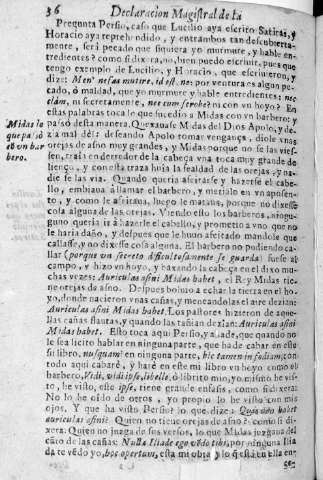 36 Declaracion Magistral de la
Pregunta Persio, caso que Lucilio aya escrito Satiras, y
Horacio aya reprehendido, y entrambos tan descubiertamente,
serà pecado que siquiera yo murmure, y hable entre
dientes? como si dixera, no, buen puedo escriuir, pues que
tengo exemplo de Lucilio, y Horacio, que escriuieron, y
dize: Men' nefas mutire, id est, ne: por ventura es algun pecado,
ò maldad, que yo murmure y hable entredientes: nec
clàm, ni secretamente, nec cum scrobe? ni con vn hoyo? En
estas palabras toca lo que sucediò a Midas con vn barbero: y
Midas lo que passò cò vn barbero.
passò desta manera. Quexauase Midas del Dios Apolo, y dezia
mal dèl: deseando Apolo tomar vengança, diòle vnas
orejas de asno muy grandes, y Midas porque no se las viessen,
traìa en derredor de la cabeça vna toca muy grande de
lienço, y con esta traza huìa la fealdad de las orejas, y nadie
se las via. Quando queria afeitarse y hazerse el cabello,
embiaua à llamar el barbero, y metialo en vn aposento,
y como le afeitaua, luego le mataua, porque no dixesse
cosa alguna de las orejas. Viendo esto los barberos, ninguno
queria ir à hazerle el cabello, y prometiò a vno que no
le haria daño, y despues que le huuo afeitado mandole que
callasse, y no dixesse cosa alguna. El barbero no pudiendo callar
(porque vn secreto dificultosamente se guarda) fuese al
campo, y hizo vn hoyo, y baxando la cabeça en el dixo muchas
vezes: Auriculas asini Midas habet, el Rey Midas tiene
orejas de asno. Despues boluiò a echar la tierra en el hoyo,
donde nacieron vnas cañas, y meneandolas el aire dezian:
Auriculas asini Midas habet. Los pastores hizieron de aquellas
cañas flautas, y quando las tañian dezian: Auriculas asini
Midas habet. Esto toca aqui Persio, y añade, que quando no
le sea licito hablar en ninguna parte, que ha de cabar en este
su libro, nusquam? en ninguna parte, hic tamen infodiam, con
todo aqui cabarè, y harè en este mi libro vn hoyo como el
barbero, Vidi, vidi ipse, libelle, ò librito mio, yo mismo he visto,
he visto, este ipse, tiene grande enfasis, como si dixera:
No lo he oìdo de otros, yo propio lo he visto con mis
ojos. Y que ha visto Persio? lo que dize: Quis non habet
auriculas asini? Quien no tiene orejas de asno? como si dixera.
Quien no juzga de sus versos, lo que Midas juzgaua del
cãto de las cañas: Nulla Iliade ego vẽdo tibi, por ninguna Iliada
te vẽdo yo, hoc opertum, esta mi obra